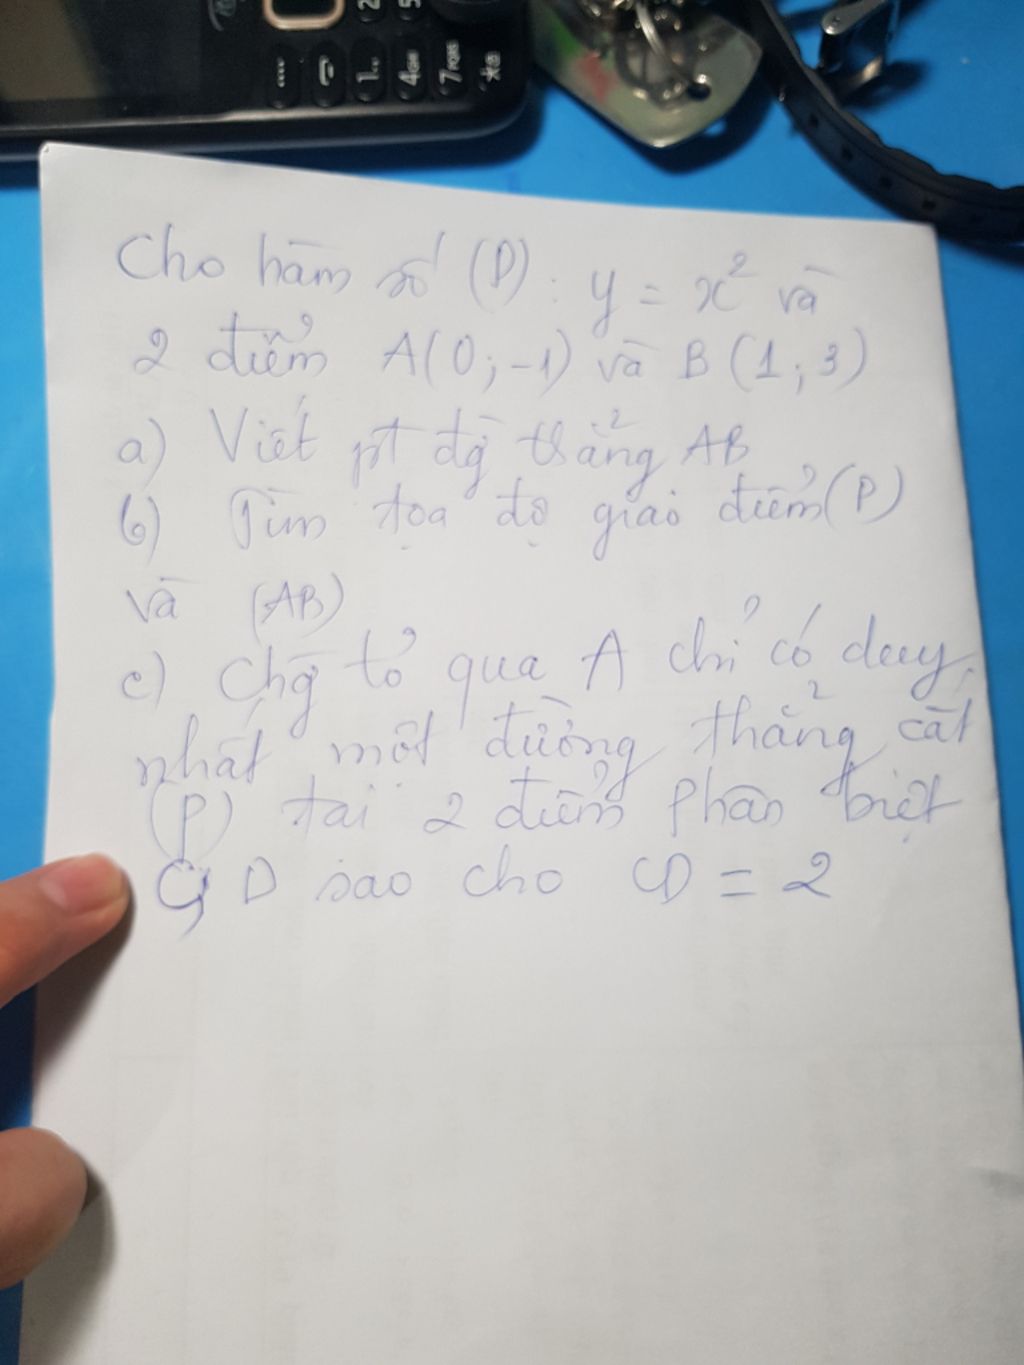 2
5
1..
4GHI
7PQRS
*
Cho hàm số (P): y = x² và
2 điểm A(0;-1) và B(1;3)
a) Viết pt đg thẳng AB
b) Tìm tọa độ giao điểm (P)
và (AB)
c) Chg tỏ qua A chỉ có duy
nhất một đường thẳng cắt
(P) tại 2 điểm phân biệt
C, D sao cho CD = 2